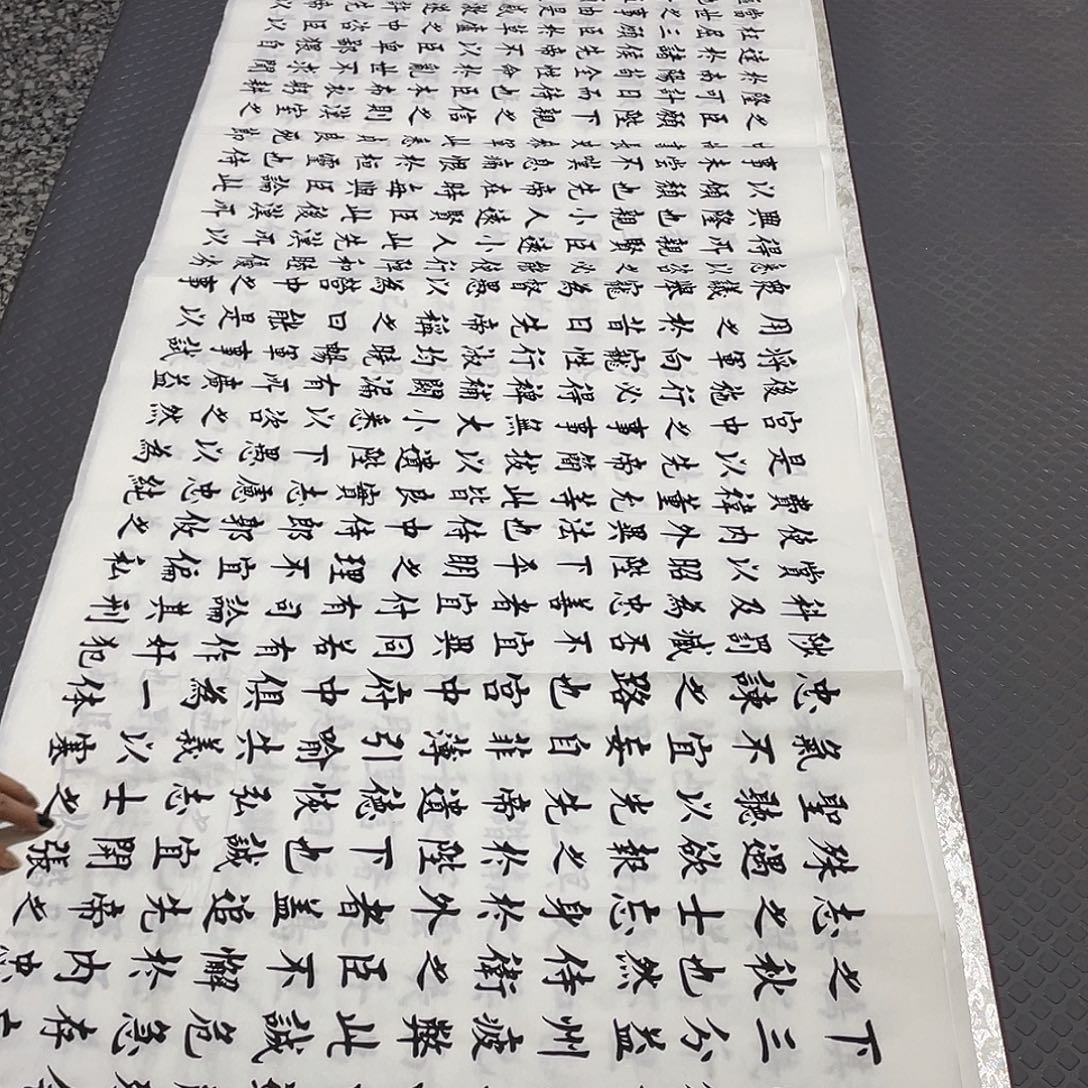 下三分益州疲弊此誠危急存亡
之秋也然侍衛之臣不懈於內忠
志之士忘身於外者蓋追先帝之
殊遇欲報之於陛下也誠宜開張
聖聽以光先帝遺德恢弘志士之
氣不宜妄自菲薄引喻失義以塞
忠諫之路也宮中府中俱為一体
陟罰臧否不宜異同若有作奸犯
科及為忠善者宜付有司論其刑
賞以昭陛下平明之理不宜偏私
使內外異法也侍中侍郎郭攸之
費禕董允等此皆良實志慮忠純
是以先帝簡拔以遺陛下愚以為
宮中之事事無大小悉以咨之然
後施行必得裨補闕漏有所廣益
將軍向寵性行淑均曉暢軍事試
用之於昔日先帝稱之曰能是以
衆儀舉寵為督愚以為營中之事
悉以咨之必能使行陣和睦優劣
得所親賢臣遠小人此先漢所以
興隆也親小人遠賢臣此後漢所
以傾頹也先帝在時每與臣論此
事未嘗不嘆息痛恨於桓靈也侍
中尚書長史參軍此悉貞良死節
之臣願陛下親之信之則漢室之
隆可計日而待也臣本布衣躬耕
於南陽苟全性命於亂世不求聞
達於諸侯先帝不以臣卑鄙猥自
枉屈三顧臣於草廬之中咨臣以